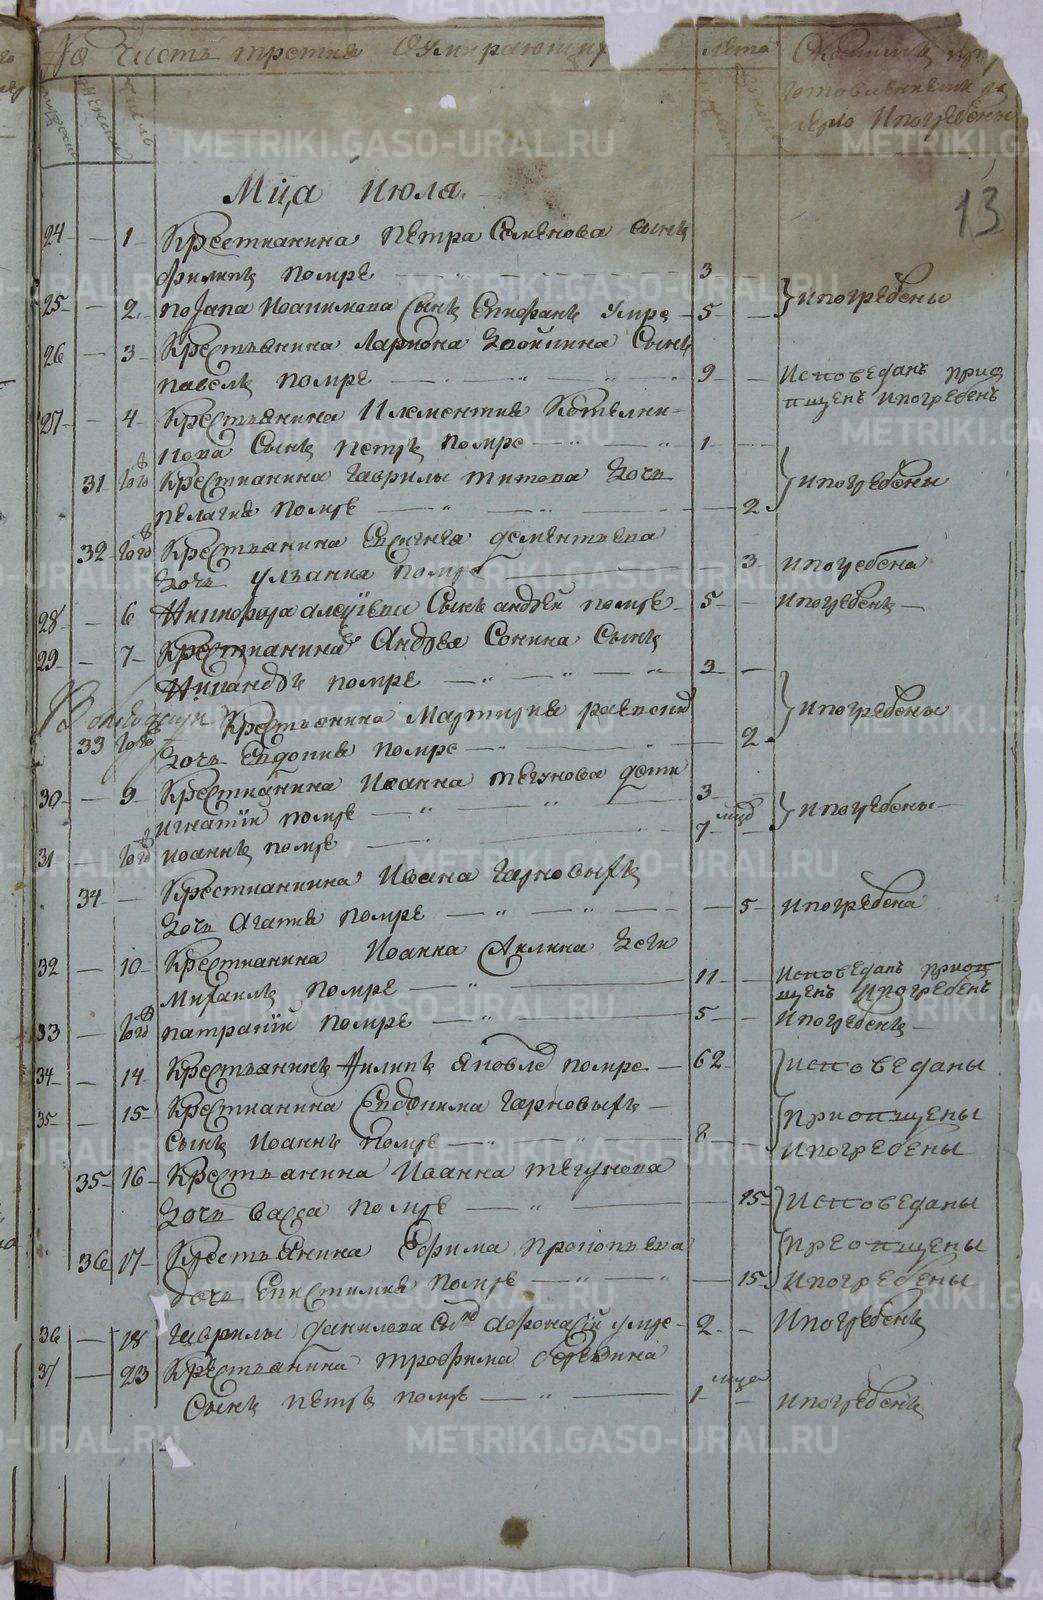 Часть третия Oумирающих
лета
мужеск
женски
число
ипогребены
13
Мца июля.
24 — 1 Крестианина петра Семенова сынъ
филипъ помре — 3
ипогребены
25 — 2 Иоакимова Сынъ Епифанъ умре — 5 —
26 — 3 Крестьянина Лариона Сынъ
павелъ помре — 9 — Исповеданъ приоб
щенъ ипогребенъ
27 — 4 Крестьянина Илементия Котелни-
кова Сынъ петръ помре — 1 —
31 тогож Крестианина Гаврилы титова дочь
ипогребены
пелагия помре — 2
32 тогож Крестьянина Евсигнея дементьева
дочь ульания помре — 3 ипогребена
28 — 6 Никифора алеѯіева Сынъ андрей помре — 5 — ипогребенъ —
29 — 7 Крестианина Андрея Сонина Сынъ
Никандръ помре — 3 —
ипогребены
33 тогож Крестьянина Мартирия
дочь Евдокия помре — 2
30 — 9 Крестианина Иоанна тегунова дети
игнатий помре — 3 —
ипогребены —
31 — тогож иоаннъ помре — 7 мцов
34 — Крестианина Ивана Чарновыхъ
дочь Агапия помре — 5 ипогребена
32 — 10 Крестианина Иоанна Аилина дети
Михаилъ помре — 11 — Исповеданъ приоб
щенъ ипогребенъ
33 — тогож патракий помре — 5 — ипогребенъ —
34 — 14 Крестьянинъ Филипъ яковлев помре — 62 исповеданы
35 — 15 Крестианина Евдокима Чарновыхъ —
приопщены
сынъ иоаннъ помре — 8 — ипогребены
35 16 Крестьянина Иоанна тегунова
дочь васса помре — 15 исповеданы
36 17 Крестьянина Ефима прокопьева
преопщены
дочь Епистимия помре — 15 ипогребены
36 — 18 Гаврилы данилова Сынъ Афонасий умре — 2 — ипогребенъ
37 — 23 Крестьянина трофима
Сынъ петръ помре — 1 мца ипогребенъ
METRIKI.GASO-URAL.RU